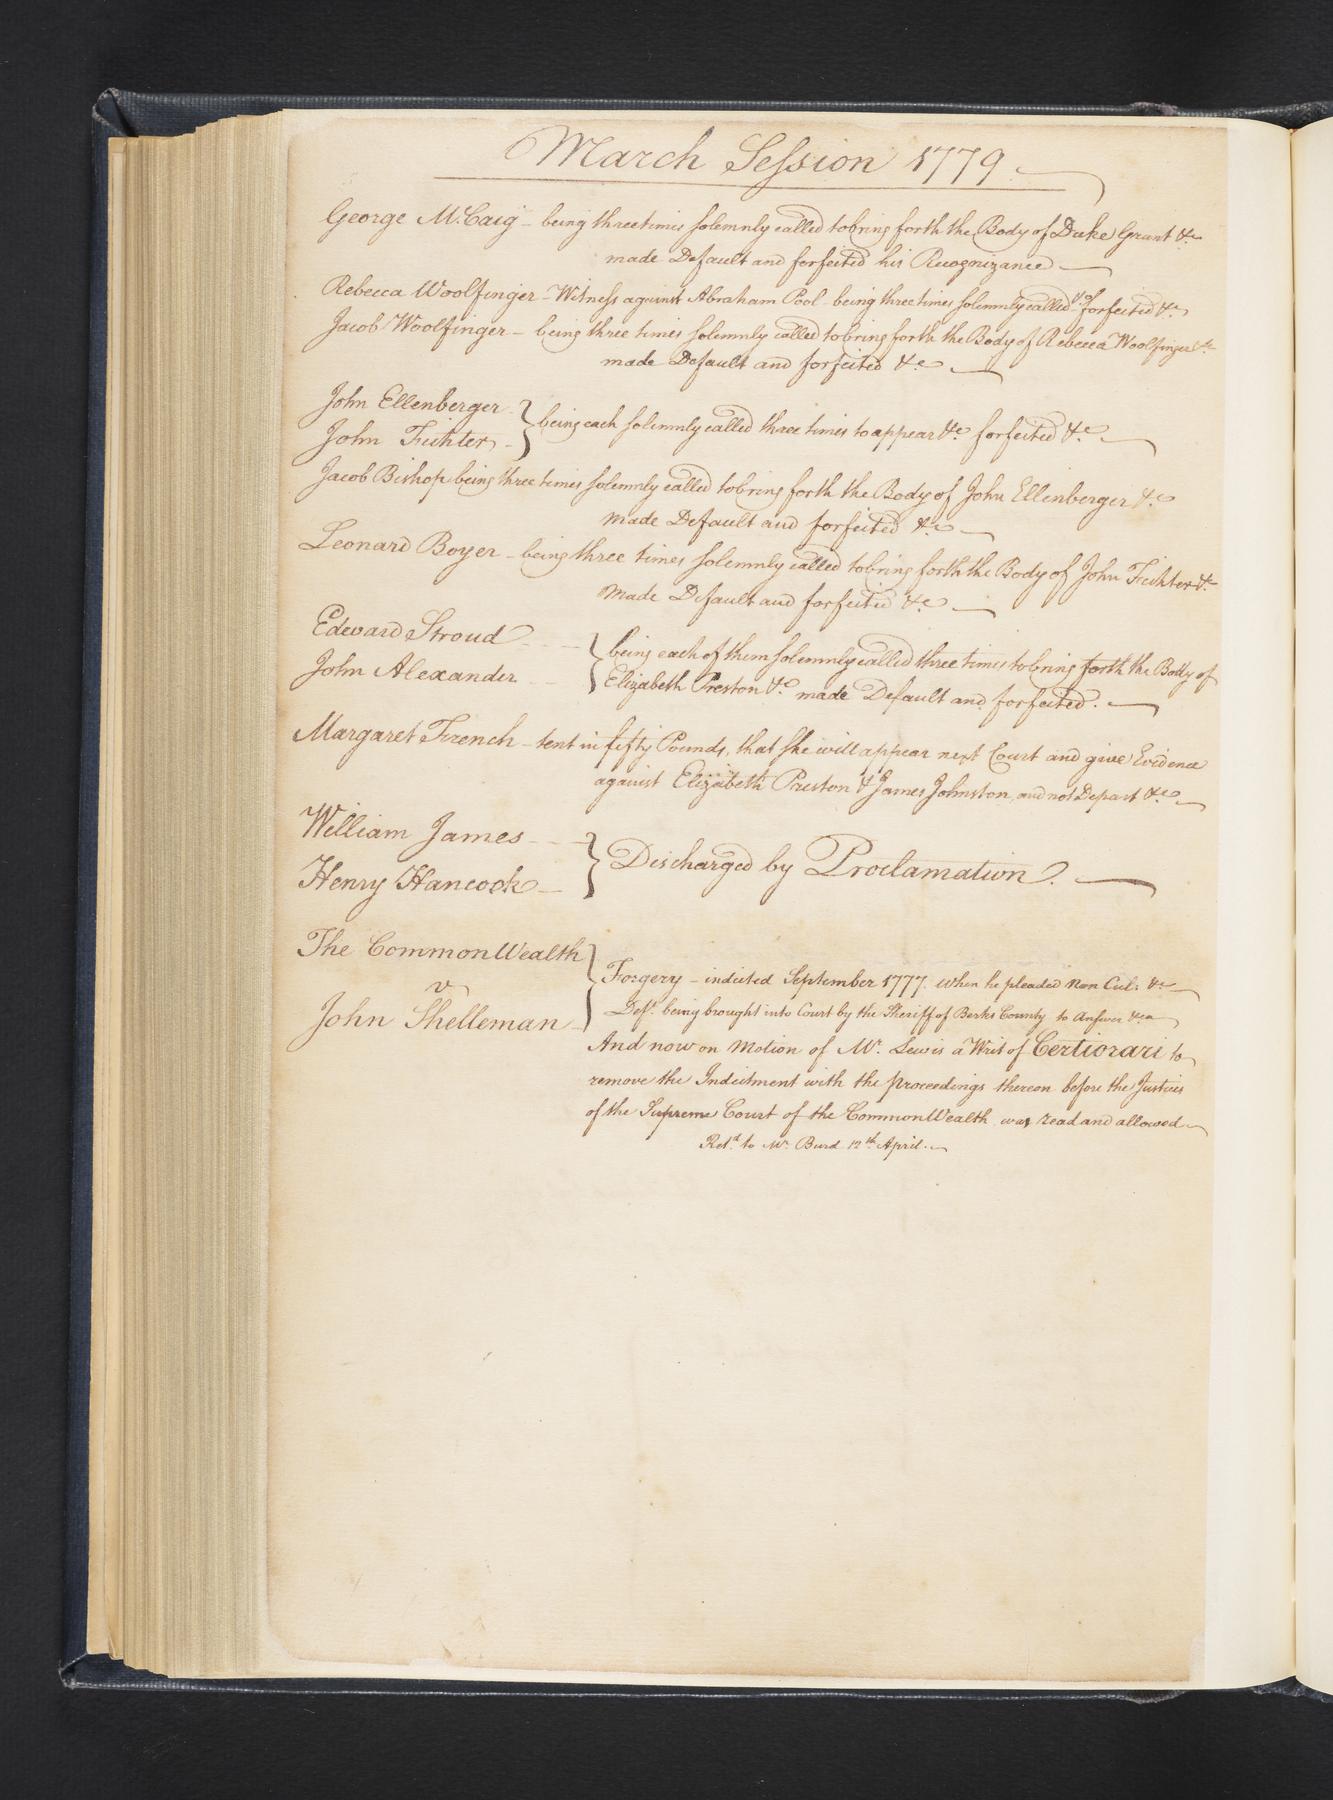 March Session 1779
George McCaig - being three times solemnly called to bring forth the Body of Duke Grant &c
made Default and forfeited his Recognizance
Rebecca Woolfinger - Witness against Abraham Pool - being three times solemnly called forfeited &c
Jacob Woolfinger - being three times solemnly called to bring forth the Body of Rebecca Woolfinger &c
made Default and forfeited &c
John Ellenberger
John Fichter } being each solemnly called three times to appear &c forfeited &c
Jacob Bishop being three times solemnly called to bring forth the Body of John Ellenberger &c
made Default and forfeited &c
Leonard Boyer - being three times solemnly called to bring forth the Body of John Fichter &c
made Default and forfeited &c
Edward Stroud } being each of them solemnly called three times to bring forth the Body of
John Alexander Elizabeth Preston &c made Default and forfeited.
Margaret French - tent in fifty Pounds, that she will appear next Court and give Evidence
against Elizabeth Preston & James Johnston, and not Depart &c
William James
Henry Hancock } Discharged by Proclamation.
The CommonWealth
v
John Shelleman } Forgery - indicted September 1777. when he pleaded Non Cul: &c
Deft. being brought into Court by the Sheriff of Berks County to Answer &ca
And now on Motion of Mr. Lewis a Writ of Certiorari to
remove the Indictment with the proceedings thereon before the Justices
of the Supreme Court of the CommonWealth was read and allowed
Retd. to Mr. Burd 12th April.